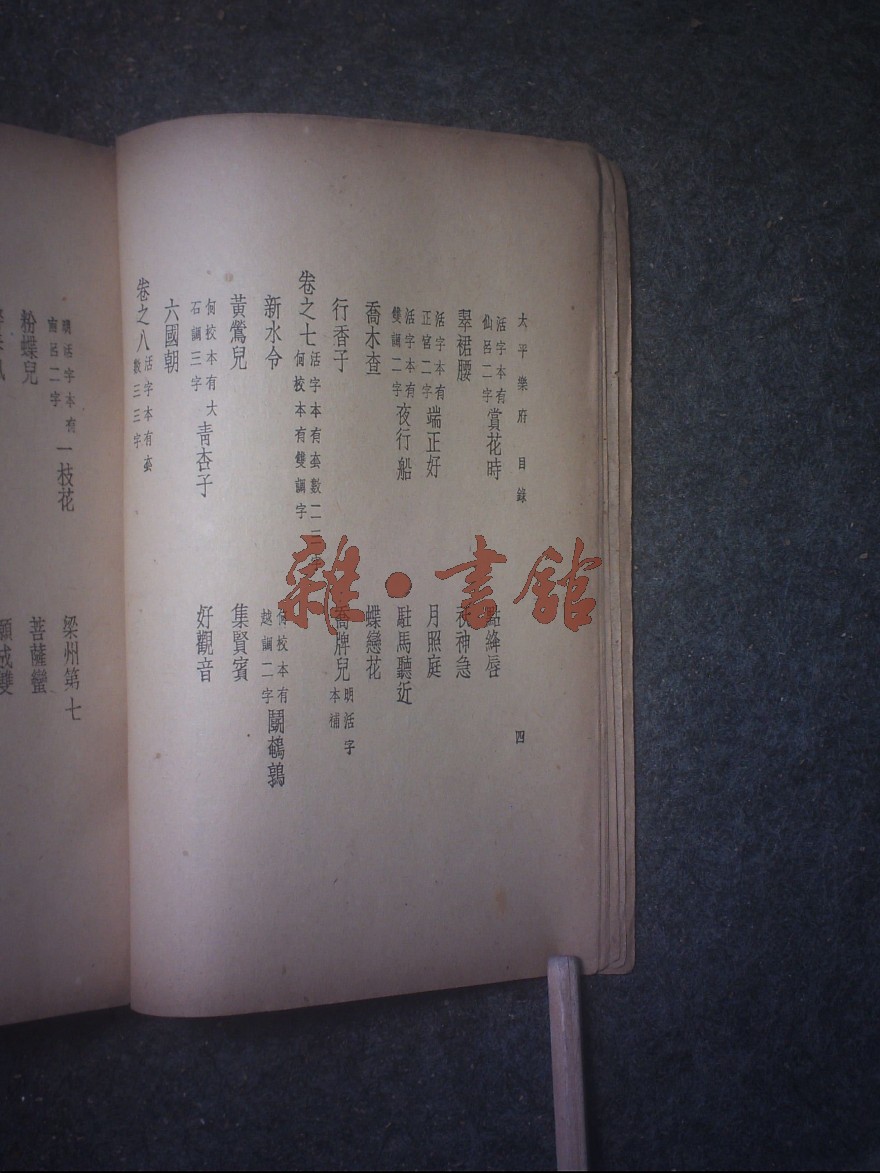 太平樂府 目錄 四
活字本有仙呂二字 賞花時 點絳唇
翠裙腰 祆神急
活字本有正宮二字 端正好 月照庭
活字本有雙調二字 夜行船 駐馬聽近
喬木查 蝶戀花
行香子 喬牌兒 明活字本補
卷之七 活字本有套數二 何校本有雙調字
新水令 何校本有越調二字 鬭鵪鶉
黃鶯兒 集賢賓
何校本有大石調三字 青杏子 好觀音
六國朝
卷之八 活字本有套數三三字
明活字本有南呂二字 一枝花 梁州第七
粉蝶兒 菩薩蠻
雜·書館